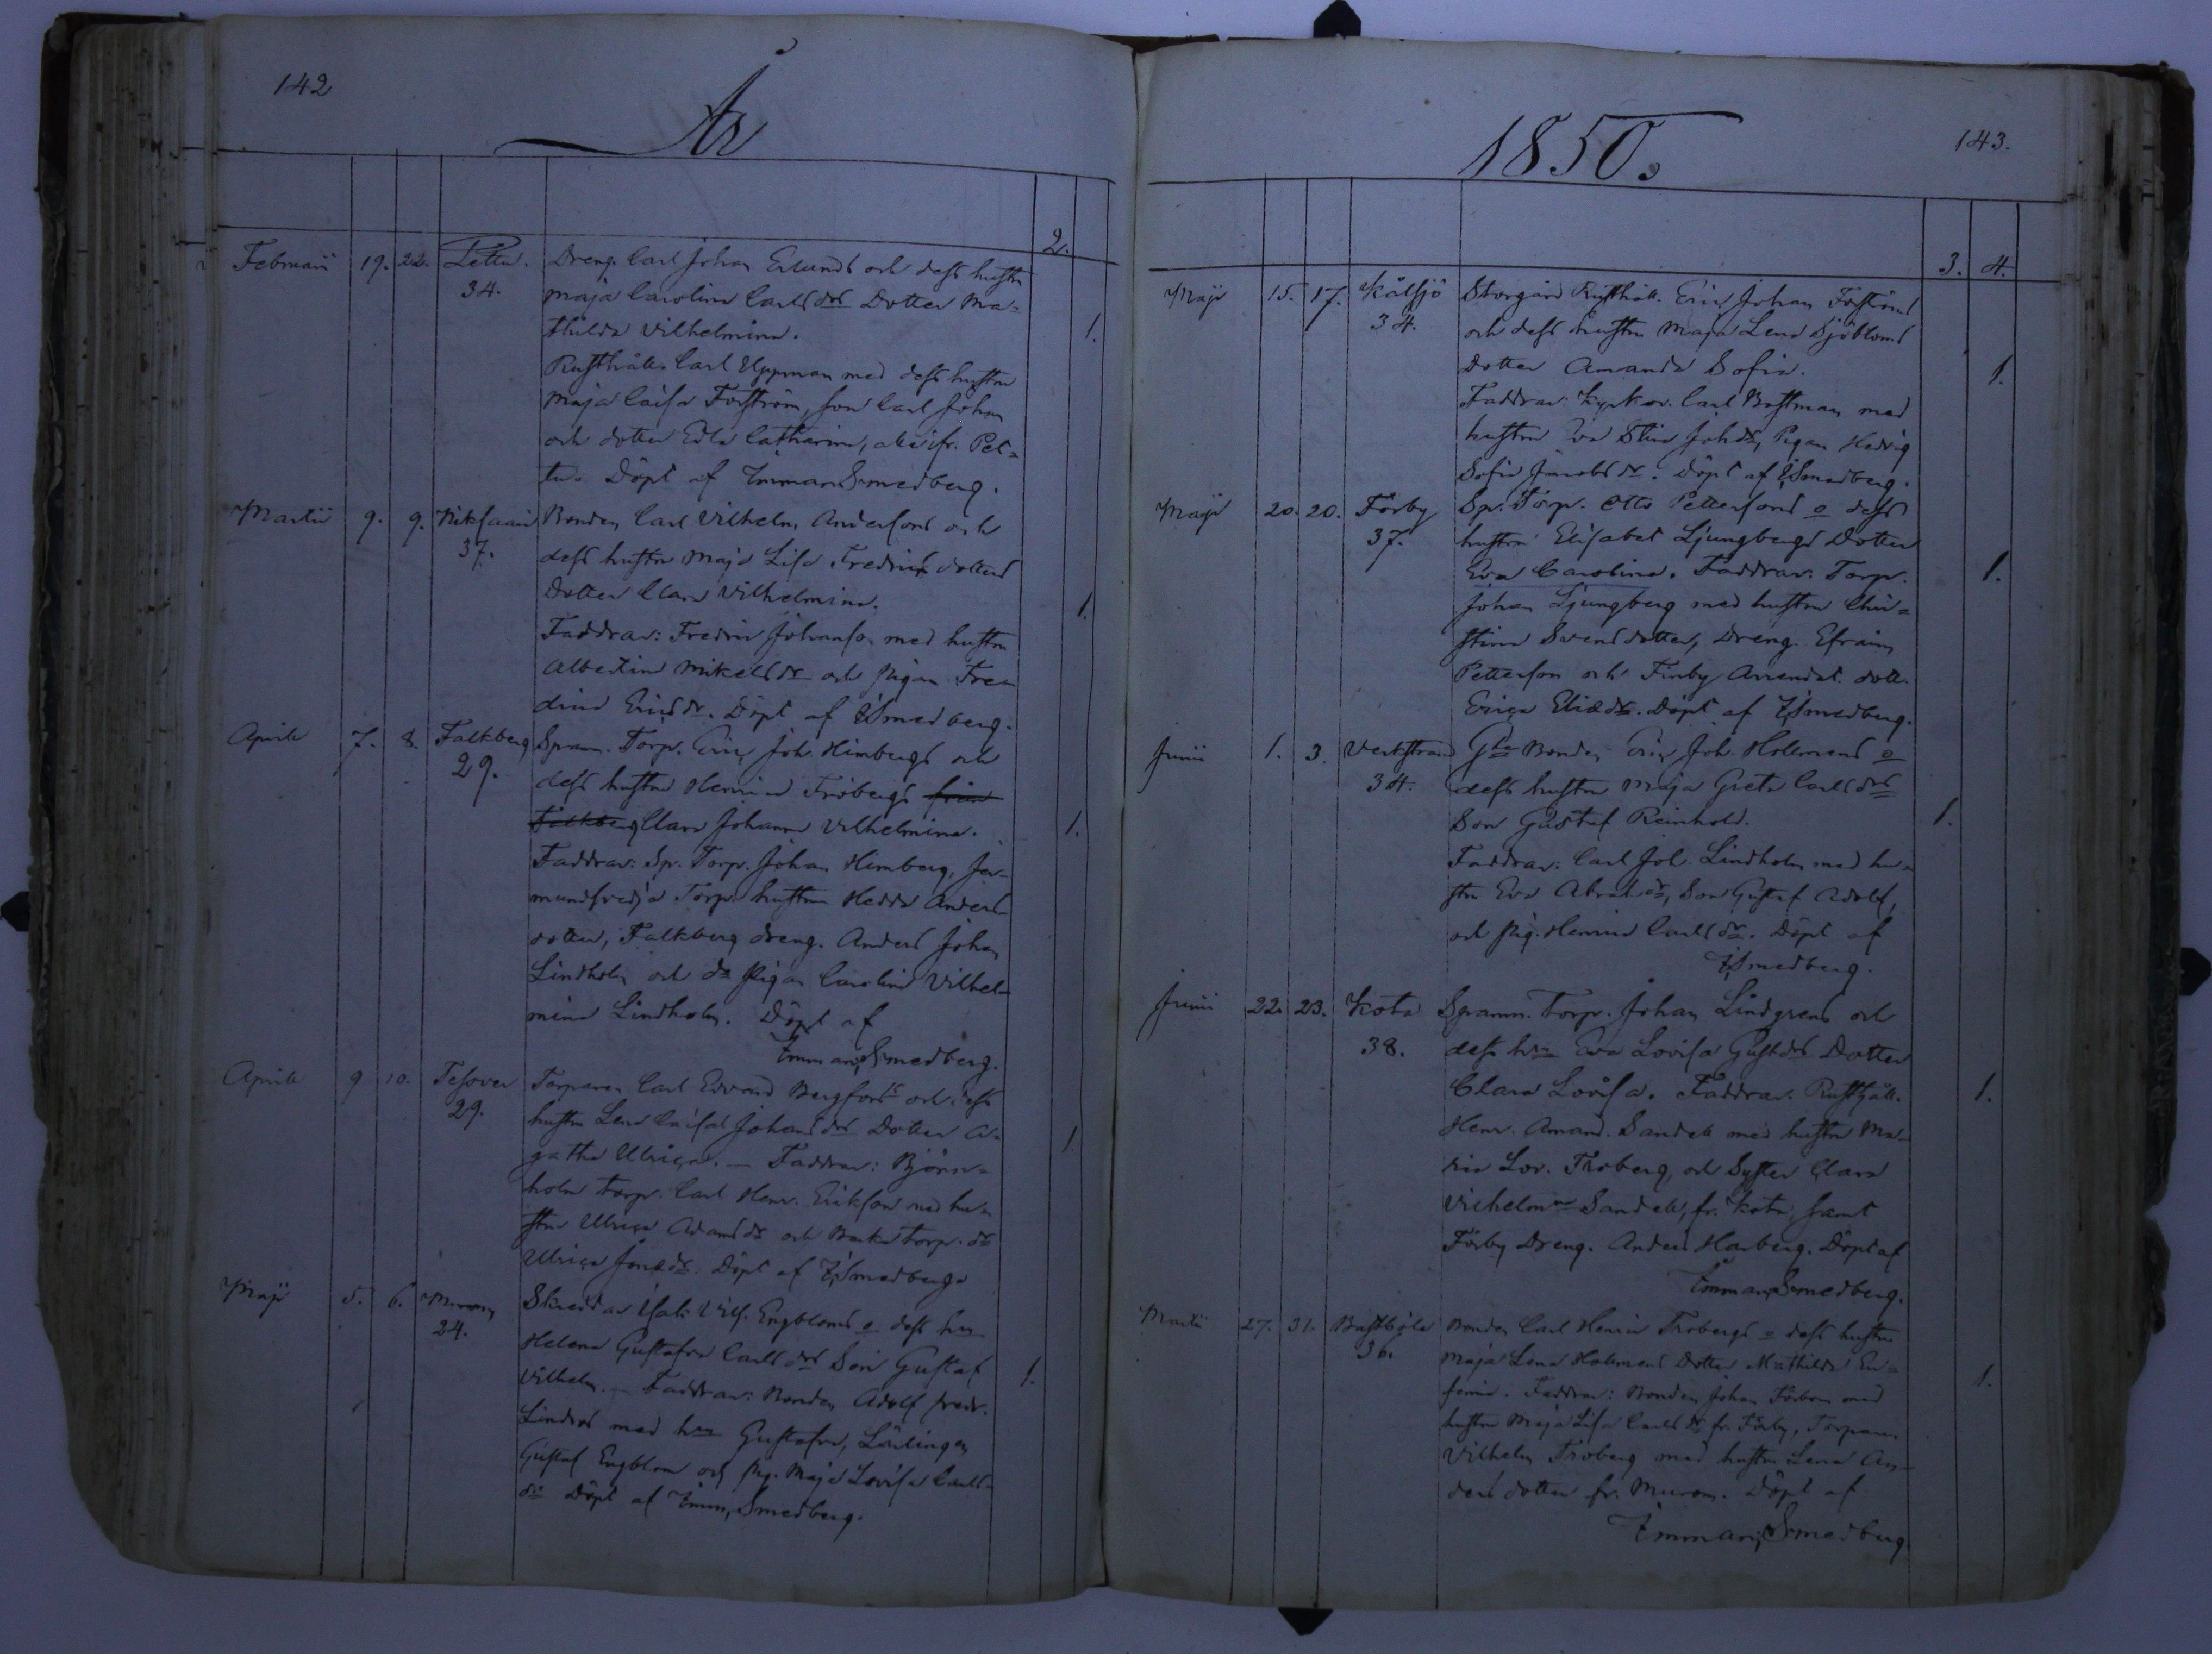 142
År
2.
Februarii 19. 22. Pettu. Dreng. Carl Johan Erlunds och dess hustru
34. Maja Carolina Carlsdrs Dotter Ma=
thilda Vilhelmina. 1.
Rusthåll. Carl Uppman med dess hustru
Maja Caisa Forsström, son Carl Johan
och dotter Edla Catharina, alla ifr. Pet=
tu. Döpt af Imman. Smedberg.
Martii 9. 9. Niksaari Bonden Carl Vilhelm Andersons och
37. dess hustru Maja Lisa Fredriksdotters
Dotter Clara Vilhelmina. 1.
Faddrar: Fredric Johanson med hustru
Albertina Mikelsdr och pigan Fre=
drica Ericsdr. Döpt af I. Smedberg.
Aprili 7. 8. Falkberg Spann. Torp. Eric Joh. Himbergs och
29. dess hustru Henrica Fribergs
Falkberg Clara Johanna Vilhelmina. 1.
Faddrar: Sp. Torp. Johan Himberg,
Torp. hustrun Hedda Anders=
dotter, Falkberg dreng. Anders Johan
Lindholm och do Pigan Carolina Vilhel=
mina Lindholm. Döpt af
Imman. Smedberg.
Aprili 9 10. Tesover Torparen Carl Edvard Bergfors och dess
29. hustru Lena Caisa Johansdrs Dotter A=
gatha Ulrica. — Faddrar: Björn= 1
holm torp. Carl Henr. Erikson med hu=
stru Ulrica Adamsdr och torp. dr
Ulrica Jonædr. Döpt af I. Smedberg.
Maji 5. 6. Murom Skreddar Isak Vilh. Engbloms o dess hu.
24. Helena Gustafva Carlsdrs Son Gustaf
Vilhelm. — Faddrar: Bonden Adolf Fredr. 1.
Lindros med hru Gustafva, Lärlingen
Gustaf Engblom och pig. Maja Lovisa Carls=
dr Döpt af Imm. Smedberg.
1850.
143.
3. 4.
Maji 15. 17. Kålsjö Storgård Rusthåll. Eric Johan Forsströms
34. och dess hustru Maja Lena Sjöbloms
Dotter Amanda Sofia. 1.
Faddrar: Kyrkov. Carl Bostman med
hustru Eva Stina Johsdr, Pigan Hedvig
Sofia Jacobsdr. Döpt af I. Smedberg.
Maji 20. 20. Förby Sp. Torp. Otto Pettersons o dess
37. hustru Elisabet Ljungbergs Dotter
Eva Carolina. Faddrar: Torp. 1.
Johan Ljungberg med hustru Chri=
stina Svensdotter, Dreng. Efraim
Petterson och Finby Arrendat. dott.
Erica Eliædr. Döpt af I. Smedberg.
Junii 1. 3. Verkstrand Gla Bonden Eric Joh. Holmens o
34. dess hustru Maja Greta Carlsdrs
Son Gustaf Reinhold. 1.
Faddrar: Carl Joh. Lindholm med hu=
stru Eva Abrah.dr, Son Gustaf Adolf,
och pig. Henrica Carlsdr. Döpt af
I. Smedberg.
Junii 22. 23. Kota Spann. Torp. Johan Lindgrens och
38. dess hru Eva Lovisa Gustdrs Dotter
Clara Lovisa. Faddrar. Rusthåll. 1.
Henr. Amand. Sandell med hustru Ma=
ria Lov. Froberg, och Syster Clara
Vilhelmna Sandell, fr. Kota, samt
Förby Dreng. Anders Harberg. Döpt af
Imman. Smedberg.
Martii 27. 31. Bastböle Bonden Carl Henric Frobergs o dess hustru
36. Maja Lena Holmens Dotter Mathilda Eu=
femia. Faddrar: Bonden Johan Förbom med 1.
hustru Maja Lisa Carlsdr fr. Förby, Torparen
Vilhelm Froberg med hustru Lena An=
dersdotter fr. Murom. Döpt af
Imman. Smedberg.